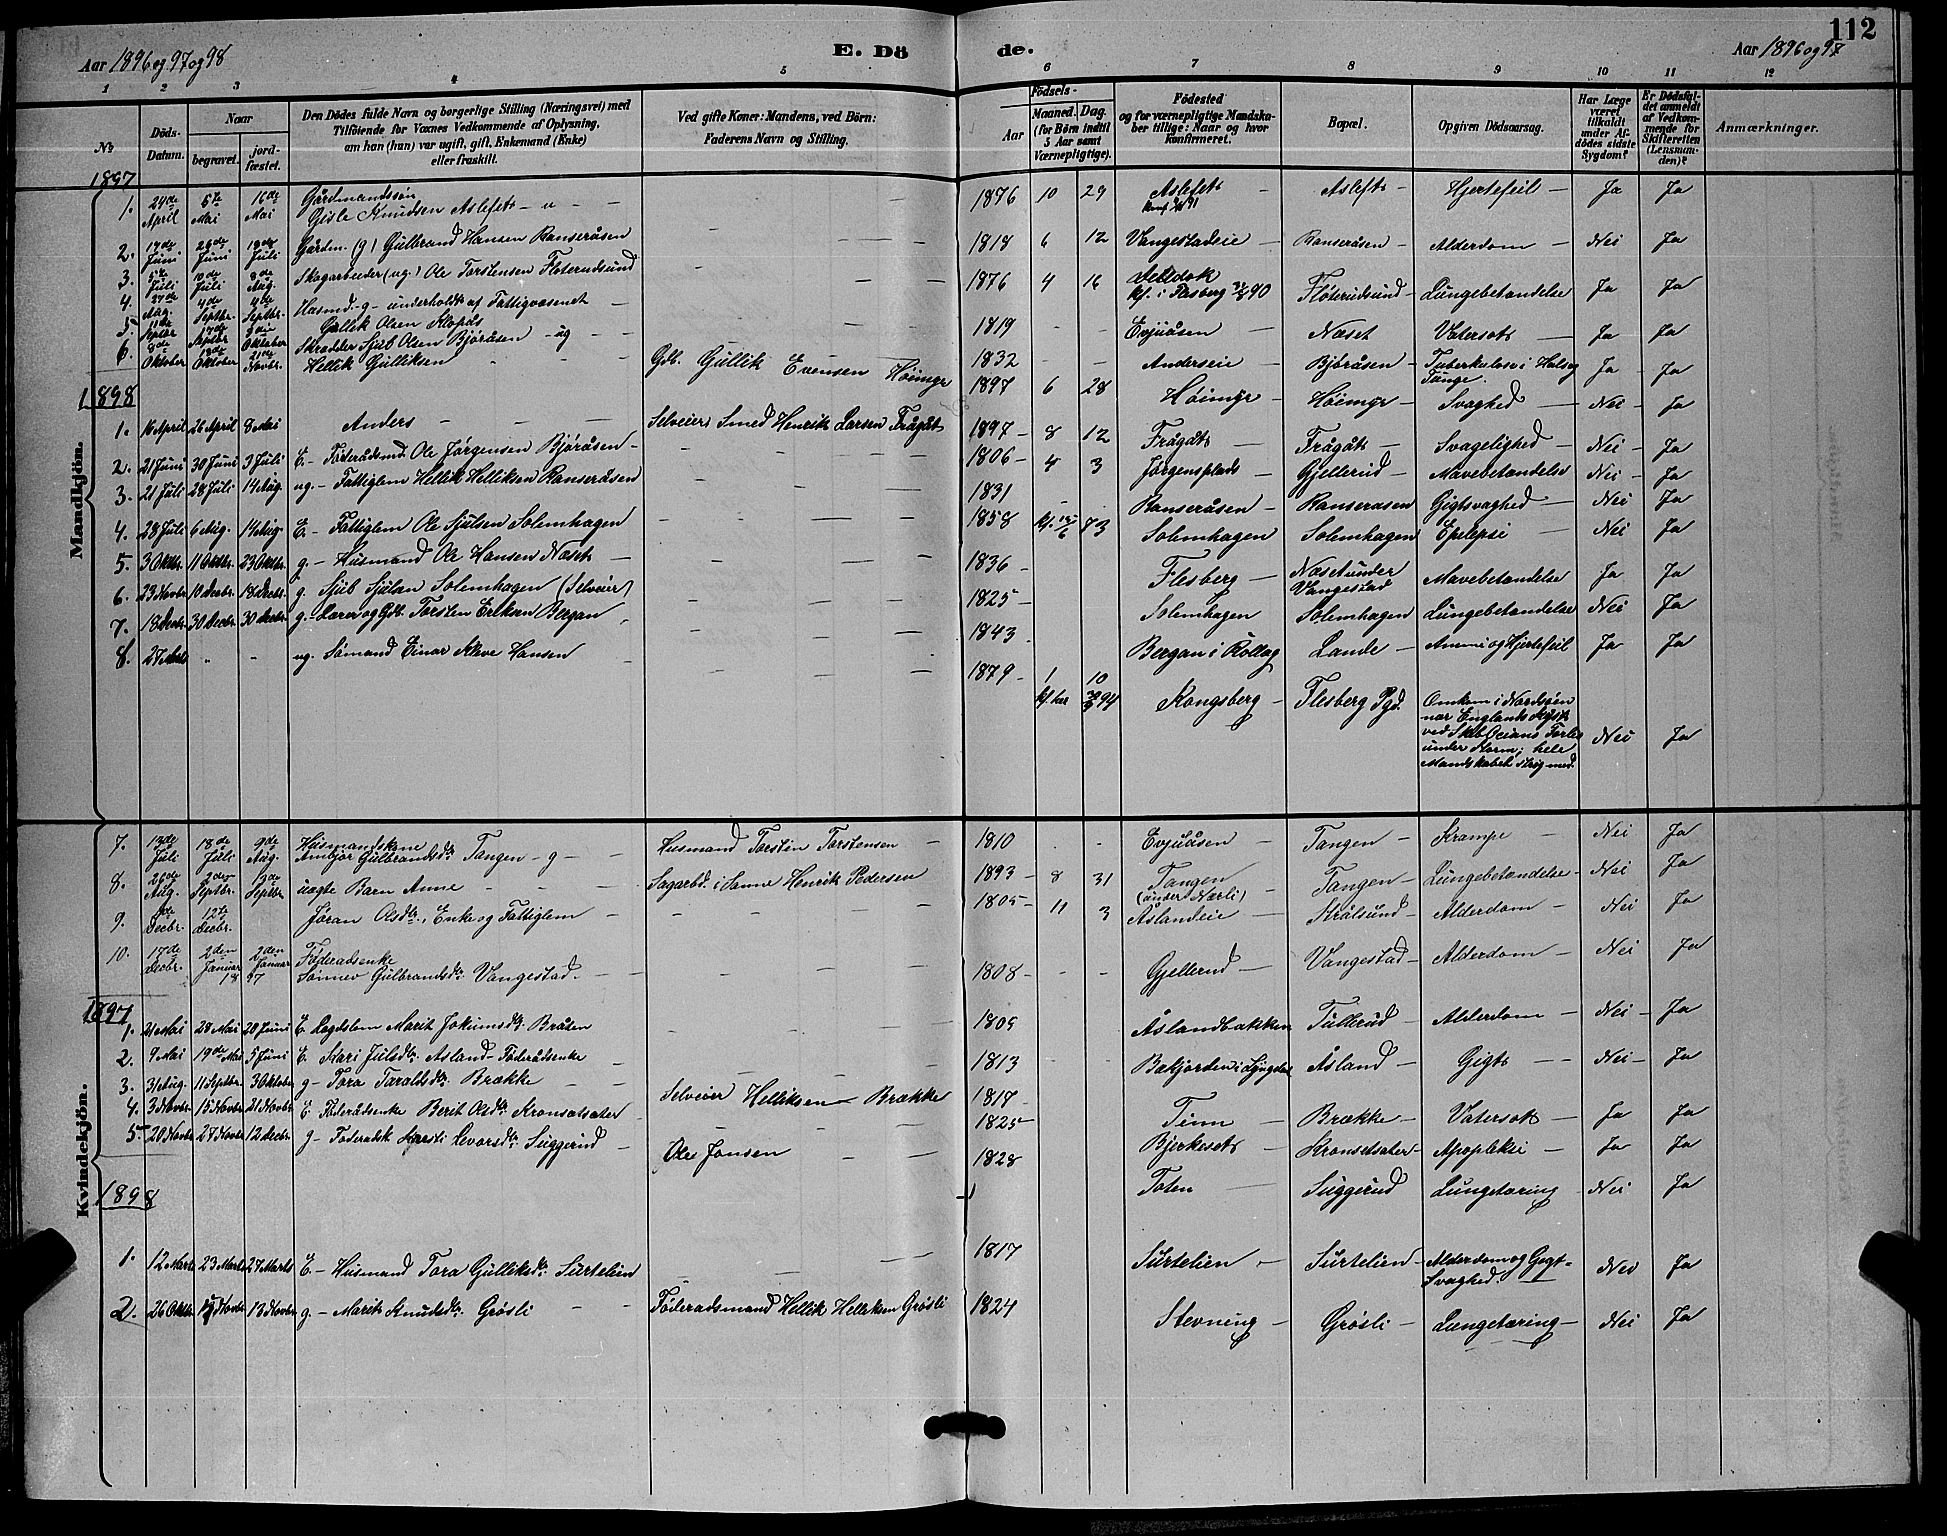 112
Aar 1896 og 97 og 98
E. Dö
de.
Aar 1896 og 97
1 2 3 4 5 6 7 8 9 10 11 12
No
Döds-Datum.
Naar
begravet.
jordfæstet.
Den Dödes fulde Navn og borgerlige Stilling (Næringsvei) med
Tilföiende for Voxnes Vedkommende af Oplysning,
om han (hun) var ugift, gift, Enkemand (Enke)
eller fraskilt.
Ved gifte Koner: Mandens, ved Börn:
Faderens Navn og Stilling.
Födsels-
Aar
Maaned. Dag.
(for Börn indtil
5 Aar samt
Værnepligtige).
Födested
og for værnepligtige Mandskaber tillige: Naar og hvor
konfirmeret.
Bopæl.
Opgiven Dödsaarsag.
Har Læge
været
tilkaldt
under Afdödes sidste
Sygdom?
Er Dödsfaldet anmeldt
af Vedkommende for
Skifteretten
(Lensmanden)?
Anmærkninger.
Mandkjön.
1897
1. 24de April 6te Mai 16de Mai Gårdmandssøn Gisle Knudsen Aslefet - u - 1876 10 29 Aslefet Aslefet Hjertefeil Ja Ja
2. 17de Juni 26de Juni 18de Juli Gårdm. (g) Gulbrand Hansen Ranseråsen 1818 6 12 Vangestadeie Ranseråsen Alderdom Nei Ja
3. 5te Juli 10de Juli 8de Aug. Skogarbeider (ug.) Ole Torstensen Floterudsund 1876 4 16 kf. i Flesberg 90 Floterudsund Lungebetændelse Ja Ja
4. 27de Aug. 4de Septbr. 4de Septbr. Husmd. - g - underholdt af Fattigvæsenet Gullik Olsen 1819 - - Evjuåsen Næset Vatersot Ja Ja
5. 11te Septbr 17de Septbr Oktober Skrædder Sjub Olsen Bjøråsen - ug 1832 - - Anderseie Bjøråsen Tuberkulose i Hals og Tunge. Ja Ja
6. 8de Oktober 18de Oktober 21de Novbr. Hellik Gulliksen Gdb. Gullik Evensen Höimyr 1897 6 28 Höimyr Höimyr Svaghed Nei Ja
1898
1. 16 April 26 April 8 Mai Anders Selveier Smed Henrik Larsen Frågåt 1897 8 12 Frågåt Frågåt Svagelighed Nei Ja
2. 21 Juni 30 Juni 3 Juli E. - Föderådsmd Ole Jørgensen Bjøråsen 1806 4 3 Jørgensplads Gjellerud Mavebetændelse Nei Ja
3. 21 Juli 28 Juli 14 Aug. ug. - Fattiglem Hellik Helliksen Ranseråsen 1831 - Ranseråsen Ranseråsen Gigtsvaghed Nei Ja
4. 28 Juli 6 Aug. 14 Aug. E. - Fattiglem Ole Sjulsen Solemhagen 1858 kf. 15/6 73 Solemhagen Solemhagen Epelepsi Nei Ja
5. 3 Oktbr. 11 Oktbr. 23 Oktbr. g. - Husmand Ole Hansen Næset 1836 Flesberg Næset under Vangestad Mavebetændelse Ja Ja
6. 23 Novbr. 10 Decbr. 18 Decbr. g. Sjub Sjulsen Solemhagen (Selveier) 1825 Solemhagen Solemhagen Lungebetændelse Nei Ja
7. 18 Decbr. 30 Decbr. 30 Decbr. g. - Lærer og Gdb. Torsten Eriksen Bergan 1843 Bergan i Rollag Lande Anemi og Hjertefeil Ja Ja
8. 27 Marts " - ug. Sömand Einar Kleve Hansen 1879 1 10 kf. her 94 Kongsberg Flesberg Pgd. Omkom i Nordsøen
nær Englands Kyst
ved Skib Oceans Forlis
under Storm; hele
Mandskabet strøg med. Nei Ja
Kvindekjön.
7. 13de Juli 18de Juli 9de Aug. Husmandskone Ambjør Gulbrandsdtr. Tangen - g - Husmand Torsten Torstensen 1810 - - Evjuåsen Tangen Krampe Nei Ja
8. 26de Aug. 2den Septbr. 3de Septbr. uægte Barn Anne Sagarbd. i Sanne Henrik Pedersen 1893 8 31 Tangen (under Nærli) Tangen Lungebetændelse Nei Ja
9. Decbr. 12te Decbr. Jøran Olsdtr., Enke og Fattiglem 1805 11 3 Åslandeie Strålsund Alderdom Nei Ja
10. 17de Decbr. 2den Januar 2den Januar 18 97 Föderadsenke Sønnev Gulbrandsdtr. Vangestad. 1808 - - Gjellerud Vangestad Alderdom Nei Ja
1897
1. 21 Mai 28 Mai 20 Juni E. Lægdslem Marit Jokumsdtr. Bråten 1805 Åslandbakken Tullerud Alderdom Nei Ja
2. 9 Mai 19de Mai 5 Juni E. Kari Julsdtr. Åsland - Föderådsenke 1813 - - Bekjorden i Lyngdal Åsland Gigt Nei Ja
3. 31 Aug. 11 Septbr. 3 Oktober g - Tora Taraldsdtr. Brække Selveier Helliksen Brække 1817 Tinn Brække Vatersot Ja Ja
4. 3 Novbr. 15 Novbr. 21 Novbr. E. Föderådsenke Berit Olsdtr. Kronsetsæter 1825 Bjerkeset Kronsetsæter Apopleksi Ja Ja
5. 20 Novbr. 27 Novbr. 12 Decbr. g - Föderadsk. Kersti Levorsdtr. Suggerud Ole Jonsen 1828 Toten Suggerud Lungetæring Nei Ja
1898
1. 12 Marts 23 Marts 27 Marts E. - Husmand Tora Gulliksdtr. Surtelien 1817 Surtelien Surtelien Alderdom og Gigt-Svaghed Nei Ja
2. 26 Oktbr. Novbr. 13 Novbr. g - Marit Knudsdtr. Grösli Föderadsmand Hellik Helleksen Grösli 1824 Stevning Grösli Lungetæring Nei Ja